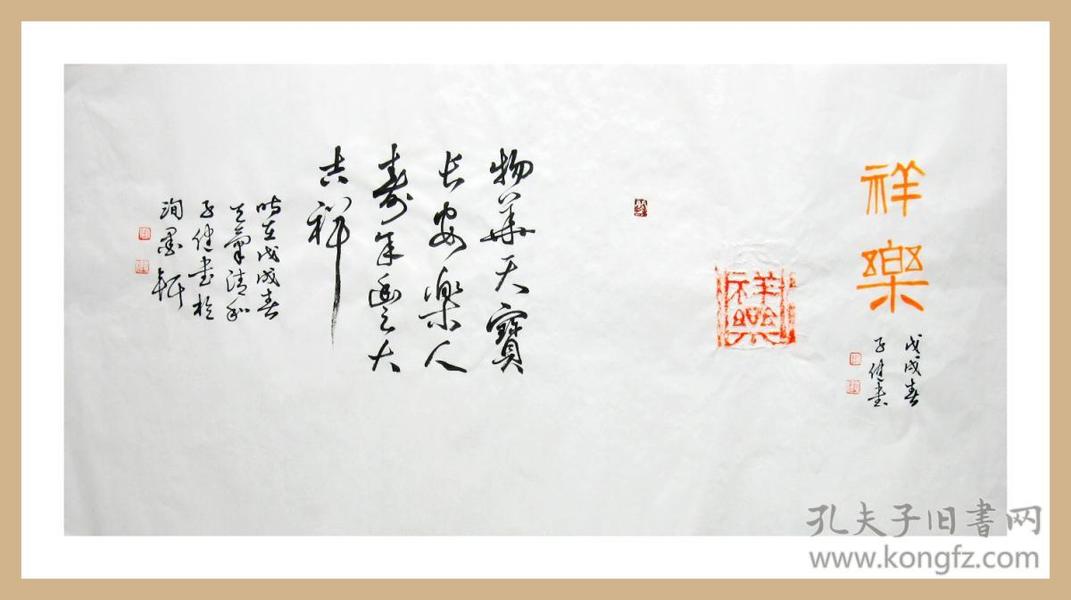 祥樂
戊戌春
子健書
祥樂
物華天寶
長安樂人
壽年豐大
吉祥
時在戊戌春
天氣清和
子健書於
洵墨軒
孔夫子旧書网
www.kongfz.com